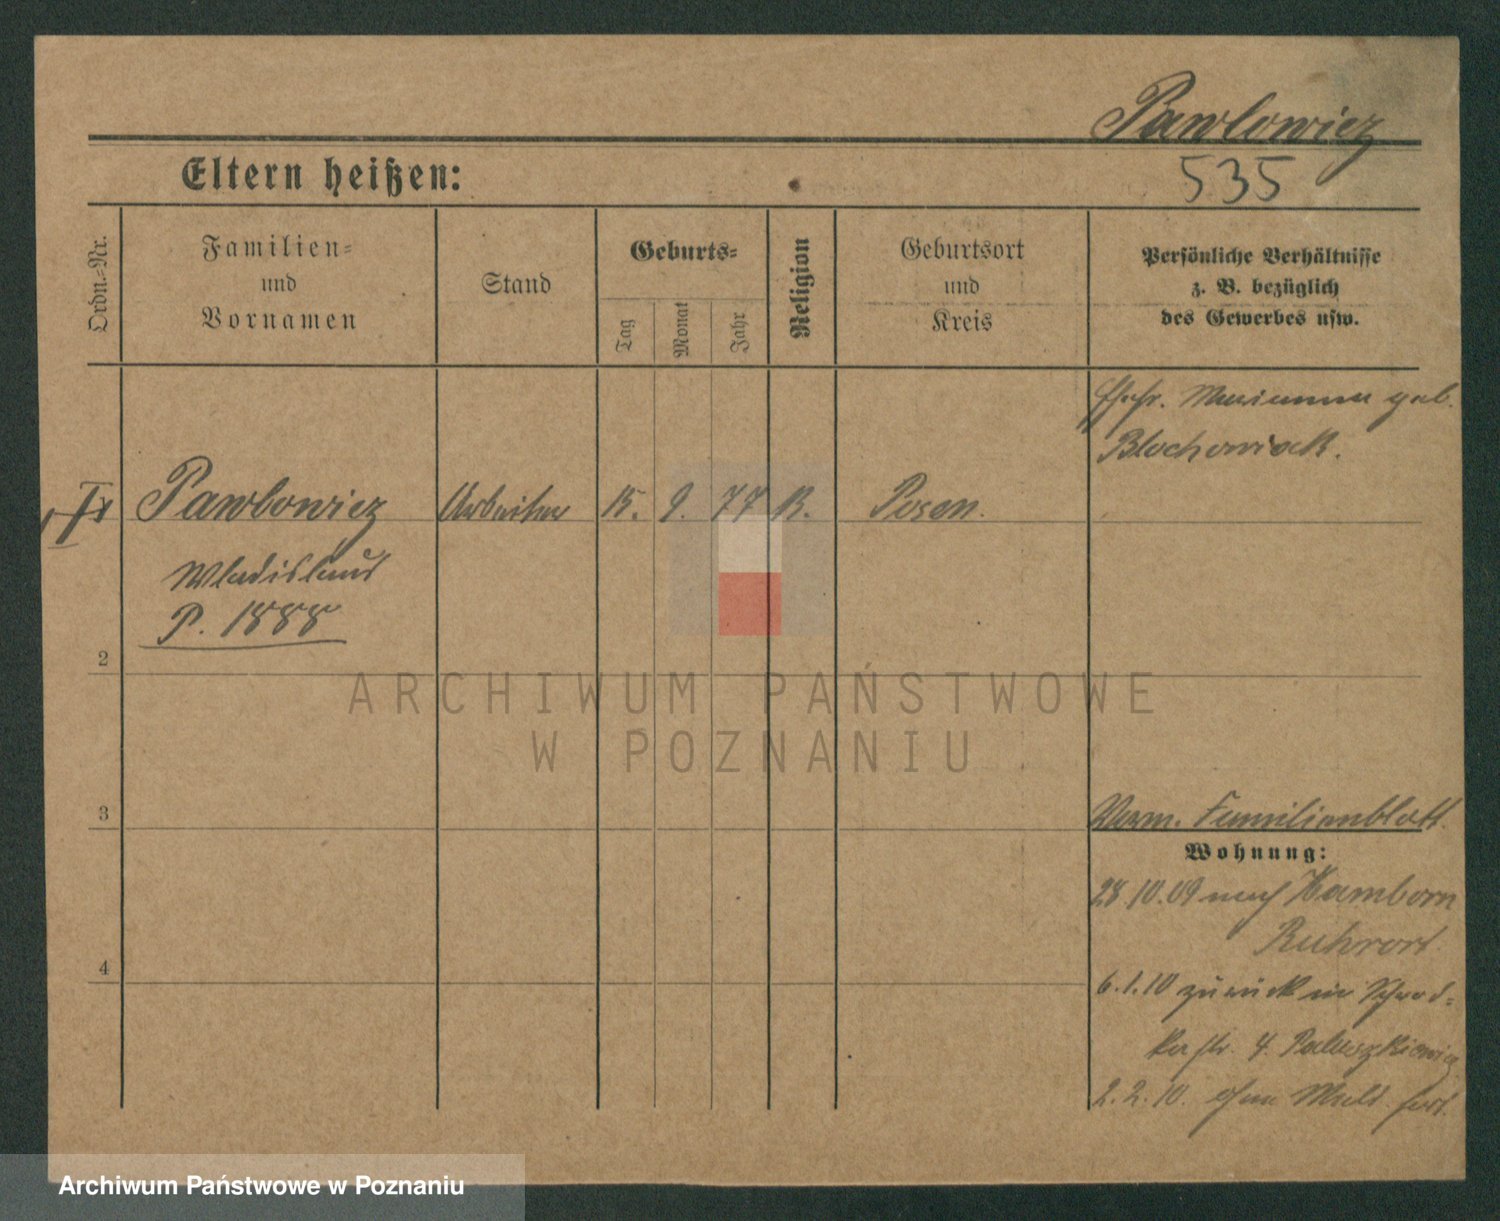 Pawlowicz
Eltern heißen:
535
Ordn.=Nr.
Familien=
und
Vornamen
Stand
Geburts=
Tag
Monat
Jahr
Religion
Geburtsort
und
Kreis
Persönliche Verhältnisse
z. B. bezüglich
des Gewerbes usw.
Ehefr. Marianna geb.
Blochowiak.
Pawlowicz Arbeiter 15. 9. 77 K. Posen.
Wladislaus
P. 1888
2
ARCHIWUM PAŃSTWOWE
W POZNANIU
3
Verm. Familienblatt
Wohnung:
28.10.09 nach Hamborn
Ruhrort
4
6.1.10 zurück in Schrod=
ka str. 4. Paluszkiewicz
2.2.10. ohne Meld. fort.
Archiwum Państwowe w Poznaniu